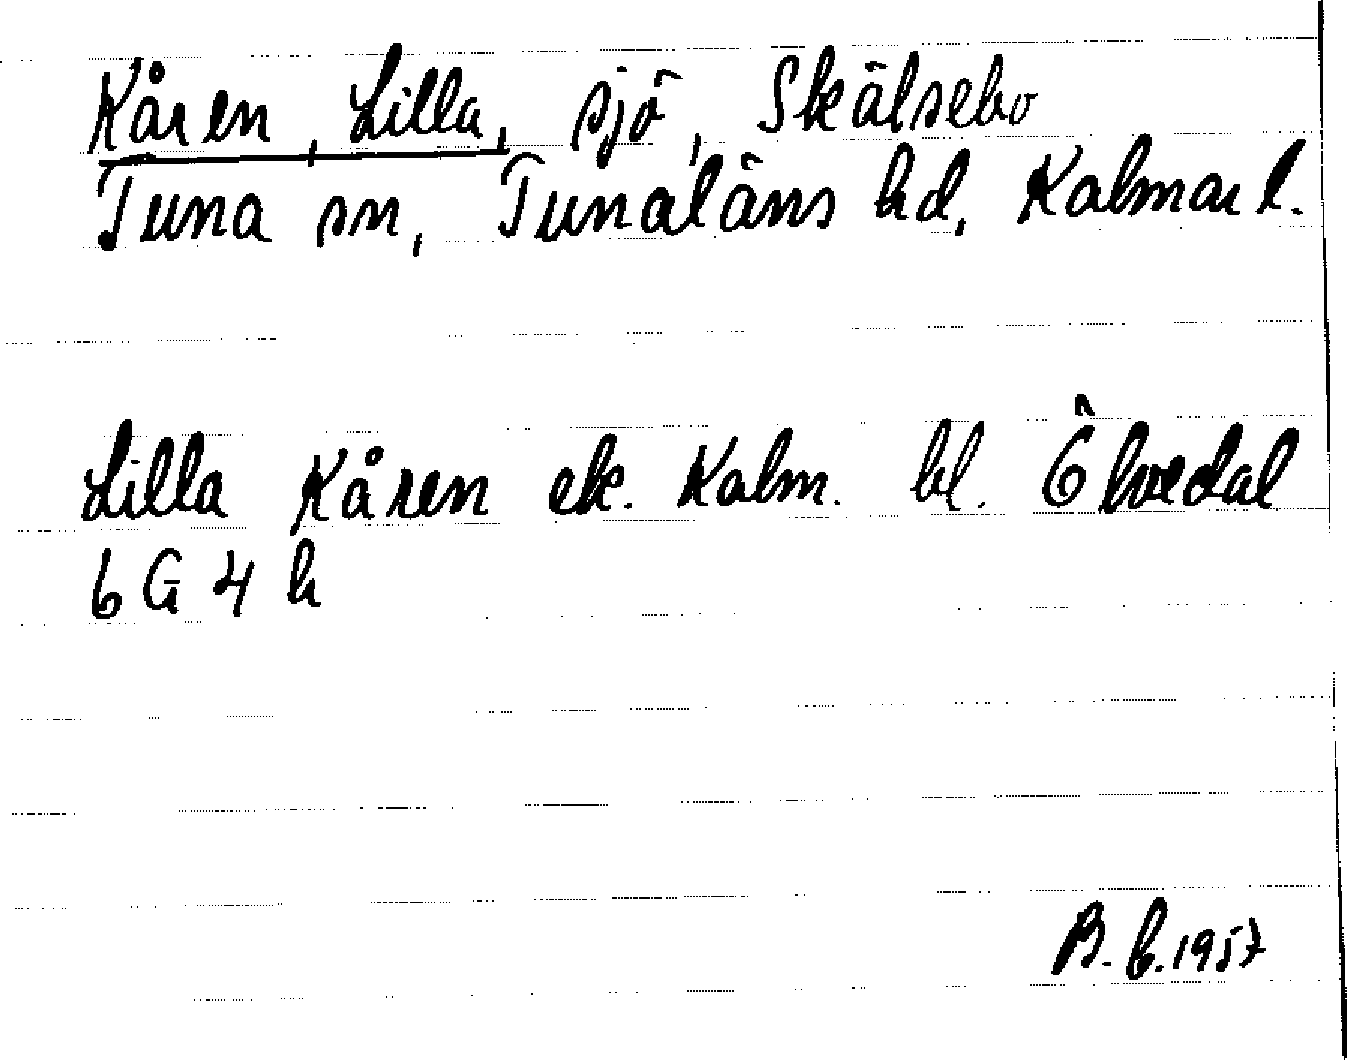 Kåren, Lilla, sjö, Skälsebo
Tuna sn, Tunaläns hd, Kalmar l.
Lilla Kåren ek. Kalm. bl. Ölvedal
6 G 4 h
B. C. 1957